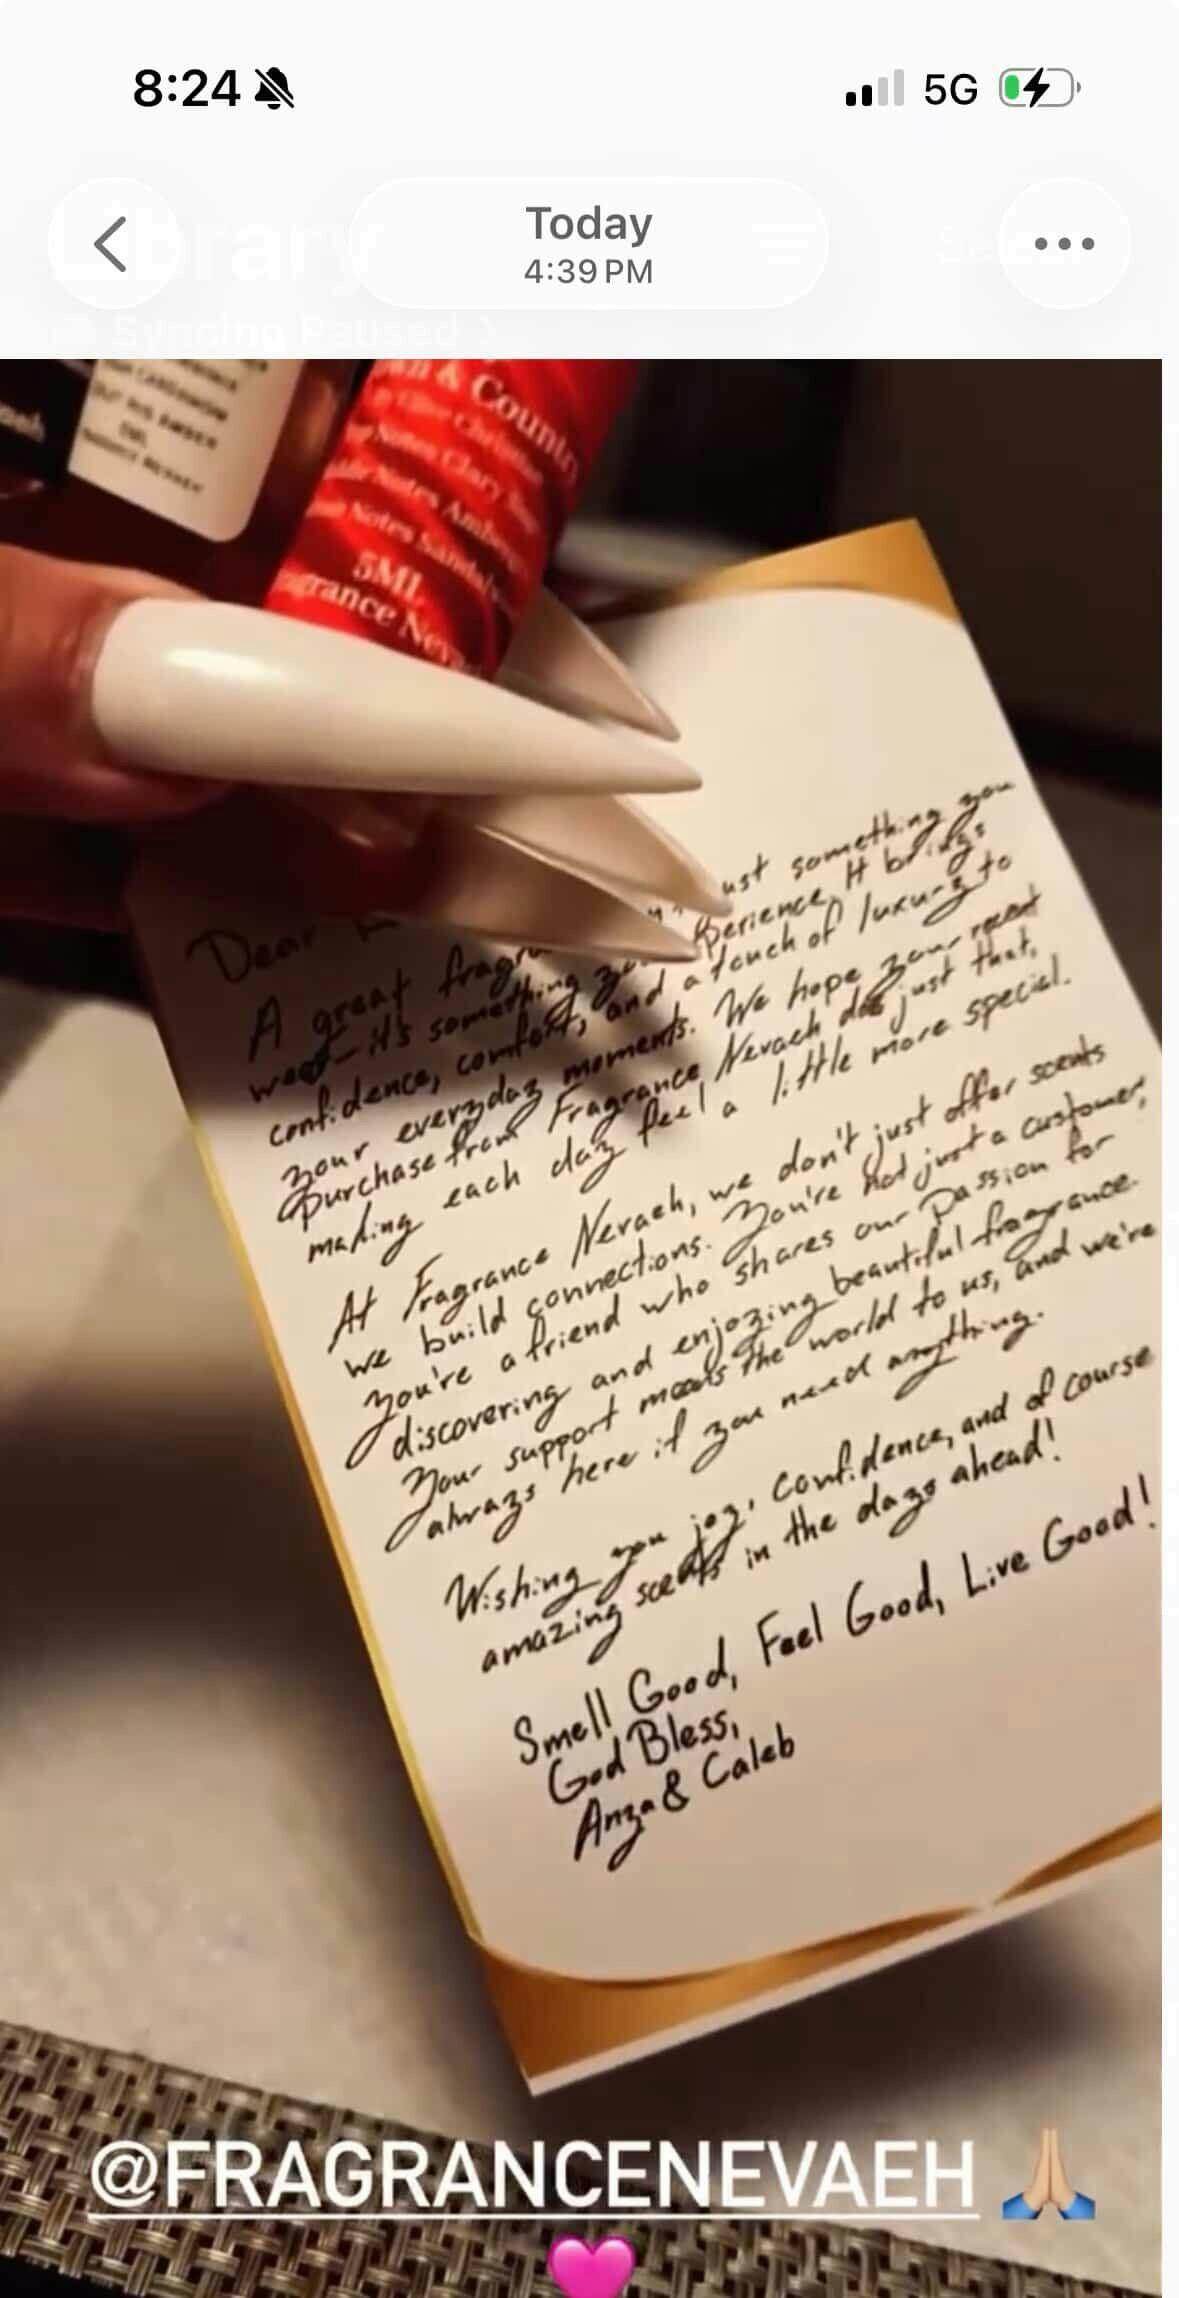 8:24
5G
Library
Today
4:39 PM
Syncing Paused >
& Country
Notes Clary
Notes Amber
Notes
5ML
AMBER
5ML
Dear
A great ust something you
wear — it's something you experience. It brings
confidence, comfort, and a touch of luxury to
your everyday moments. We hope your recent
purchase from Fragrance Nevaeh does just that,
making each day feel a little more special.
At Fragrance Nevaeh, we don't just offer scents
we build connections. You're not just a customer,
you're a friend who shares our passion for
discovering and enjoying beautiful fragrance.
Your support means the world to us, and we're
always here if you need anything.
Wishing you joy, confidence, and of course
amazing scents in the days ahead!
Smell Good, Feel Good, Live Good!
God Bless,
Anya & Caleb
@FRAGRANCENEVAEH